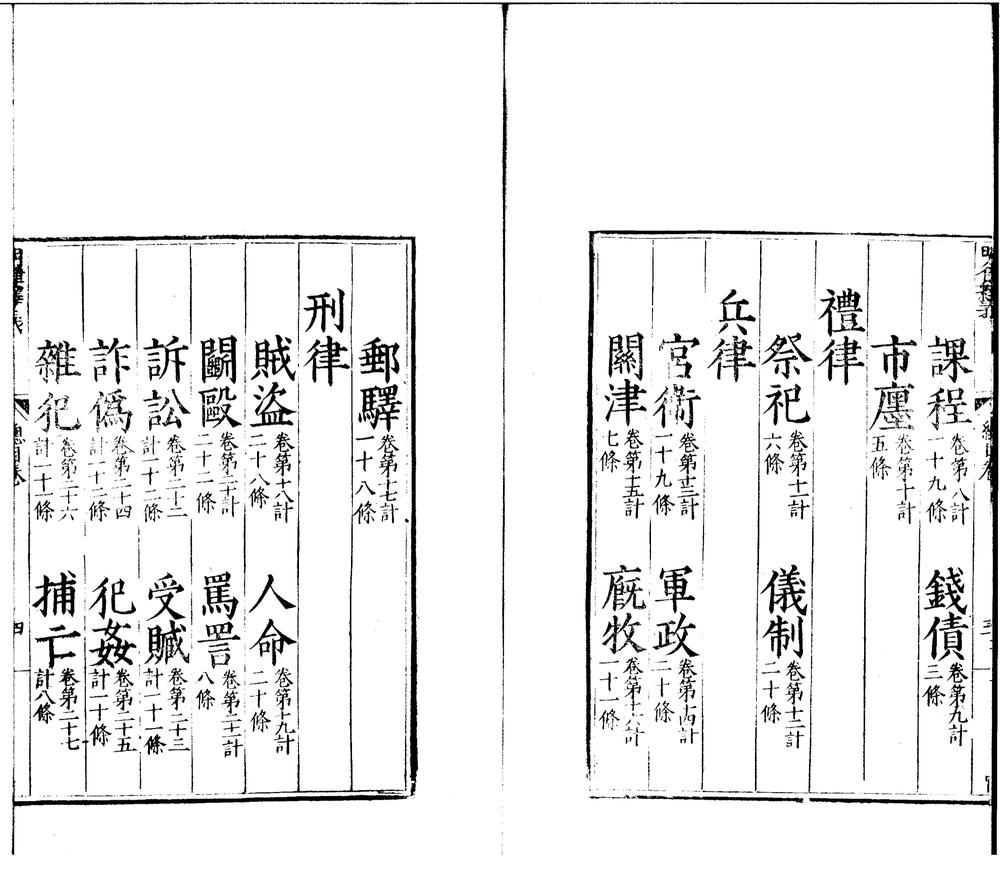 課程卷第八計一十九條 錢債卷第九計三條
市廛卷第十計五條
禮律
祭祀卷第十一計六條 儀制卷第十二計二十條
兵律
宮衞卷第十三計一十九條 軍政卷第十四計二十條
關津卷第十五計七條 廐牧卷第十六計一十一條
郵驛卷第十七計一十八條
刑律
賊盜卷第十八計二十八條 人命卷第十九計二十條
鬬毆卷第二十計二十二條 罵詈卷第二十一計八條
訴訟卷第二十二計一十二條 受贓卷第二十三計一十一條
詐僞卷第二十四計一十二條 犯姦卷第二十五計一十條
雜犯卷第二十六計一十一條 捕亡卷第二十七計八條
四